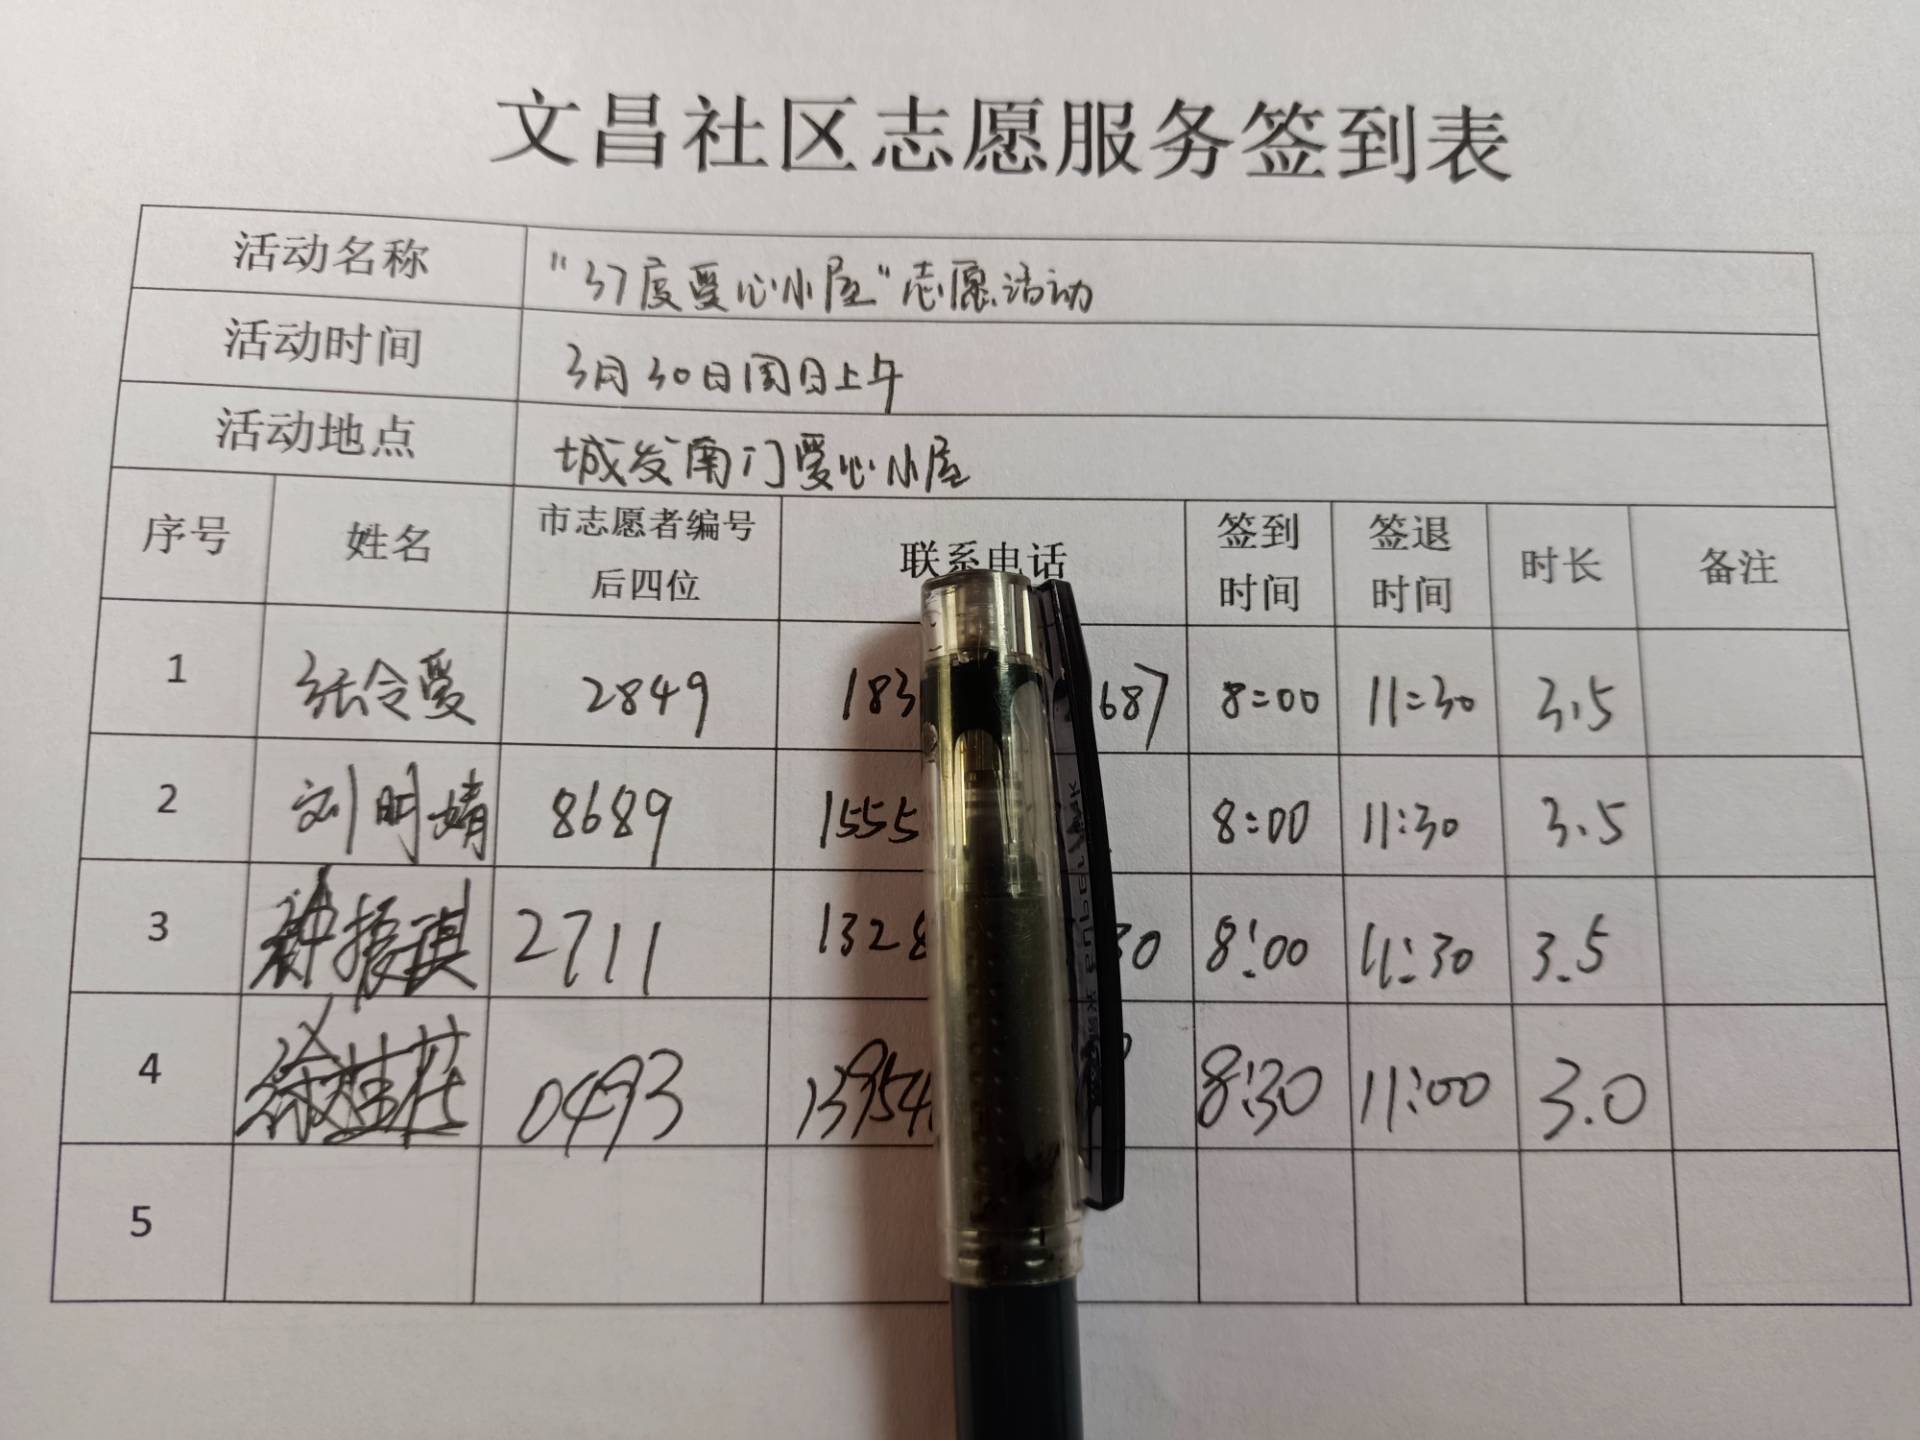 文昌社区志愿服务签到表
活动名称 "37度爱心小屋"志愿活动
活动时间 3月30日周日上午
活动地点 城发南门爱心小屋
序号 姓名 市志愿者编号后四位 联系电话 签到时间 签退时间 时长 备注
1 张令爱 2849 183 687 8:00 11:30 3.5
2 刘明婧 8689 1555 8:00 11:30 3.5
3 2711 1328 30 8:00 11:30 3.5
4 0493 13954 8:30 11:00 3.0
5